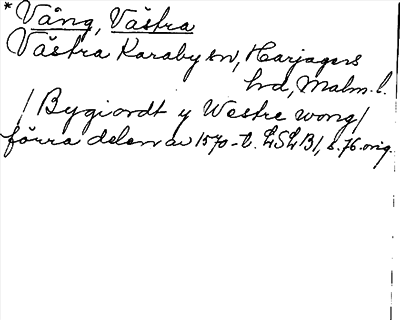 * Vång, Västra
Västra Karaby sn, Harjagers
hd, Malm. l.
/ Bygiordt y Westre wong /
förra delen av 1570-t. LSLB1, s. 76. orig.